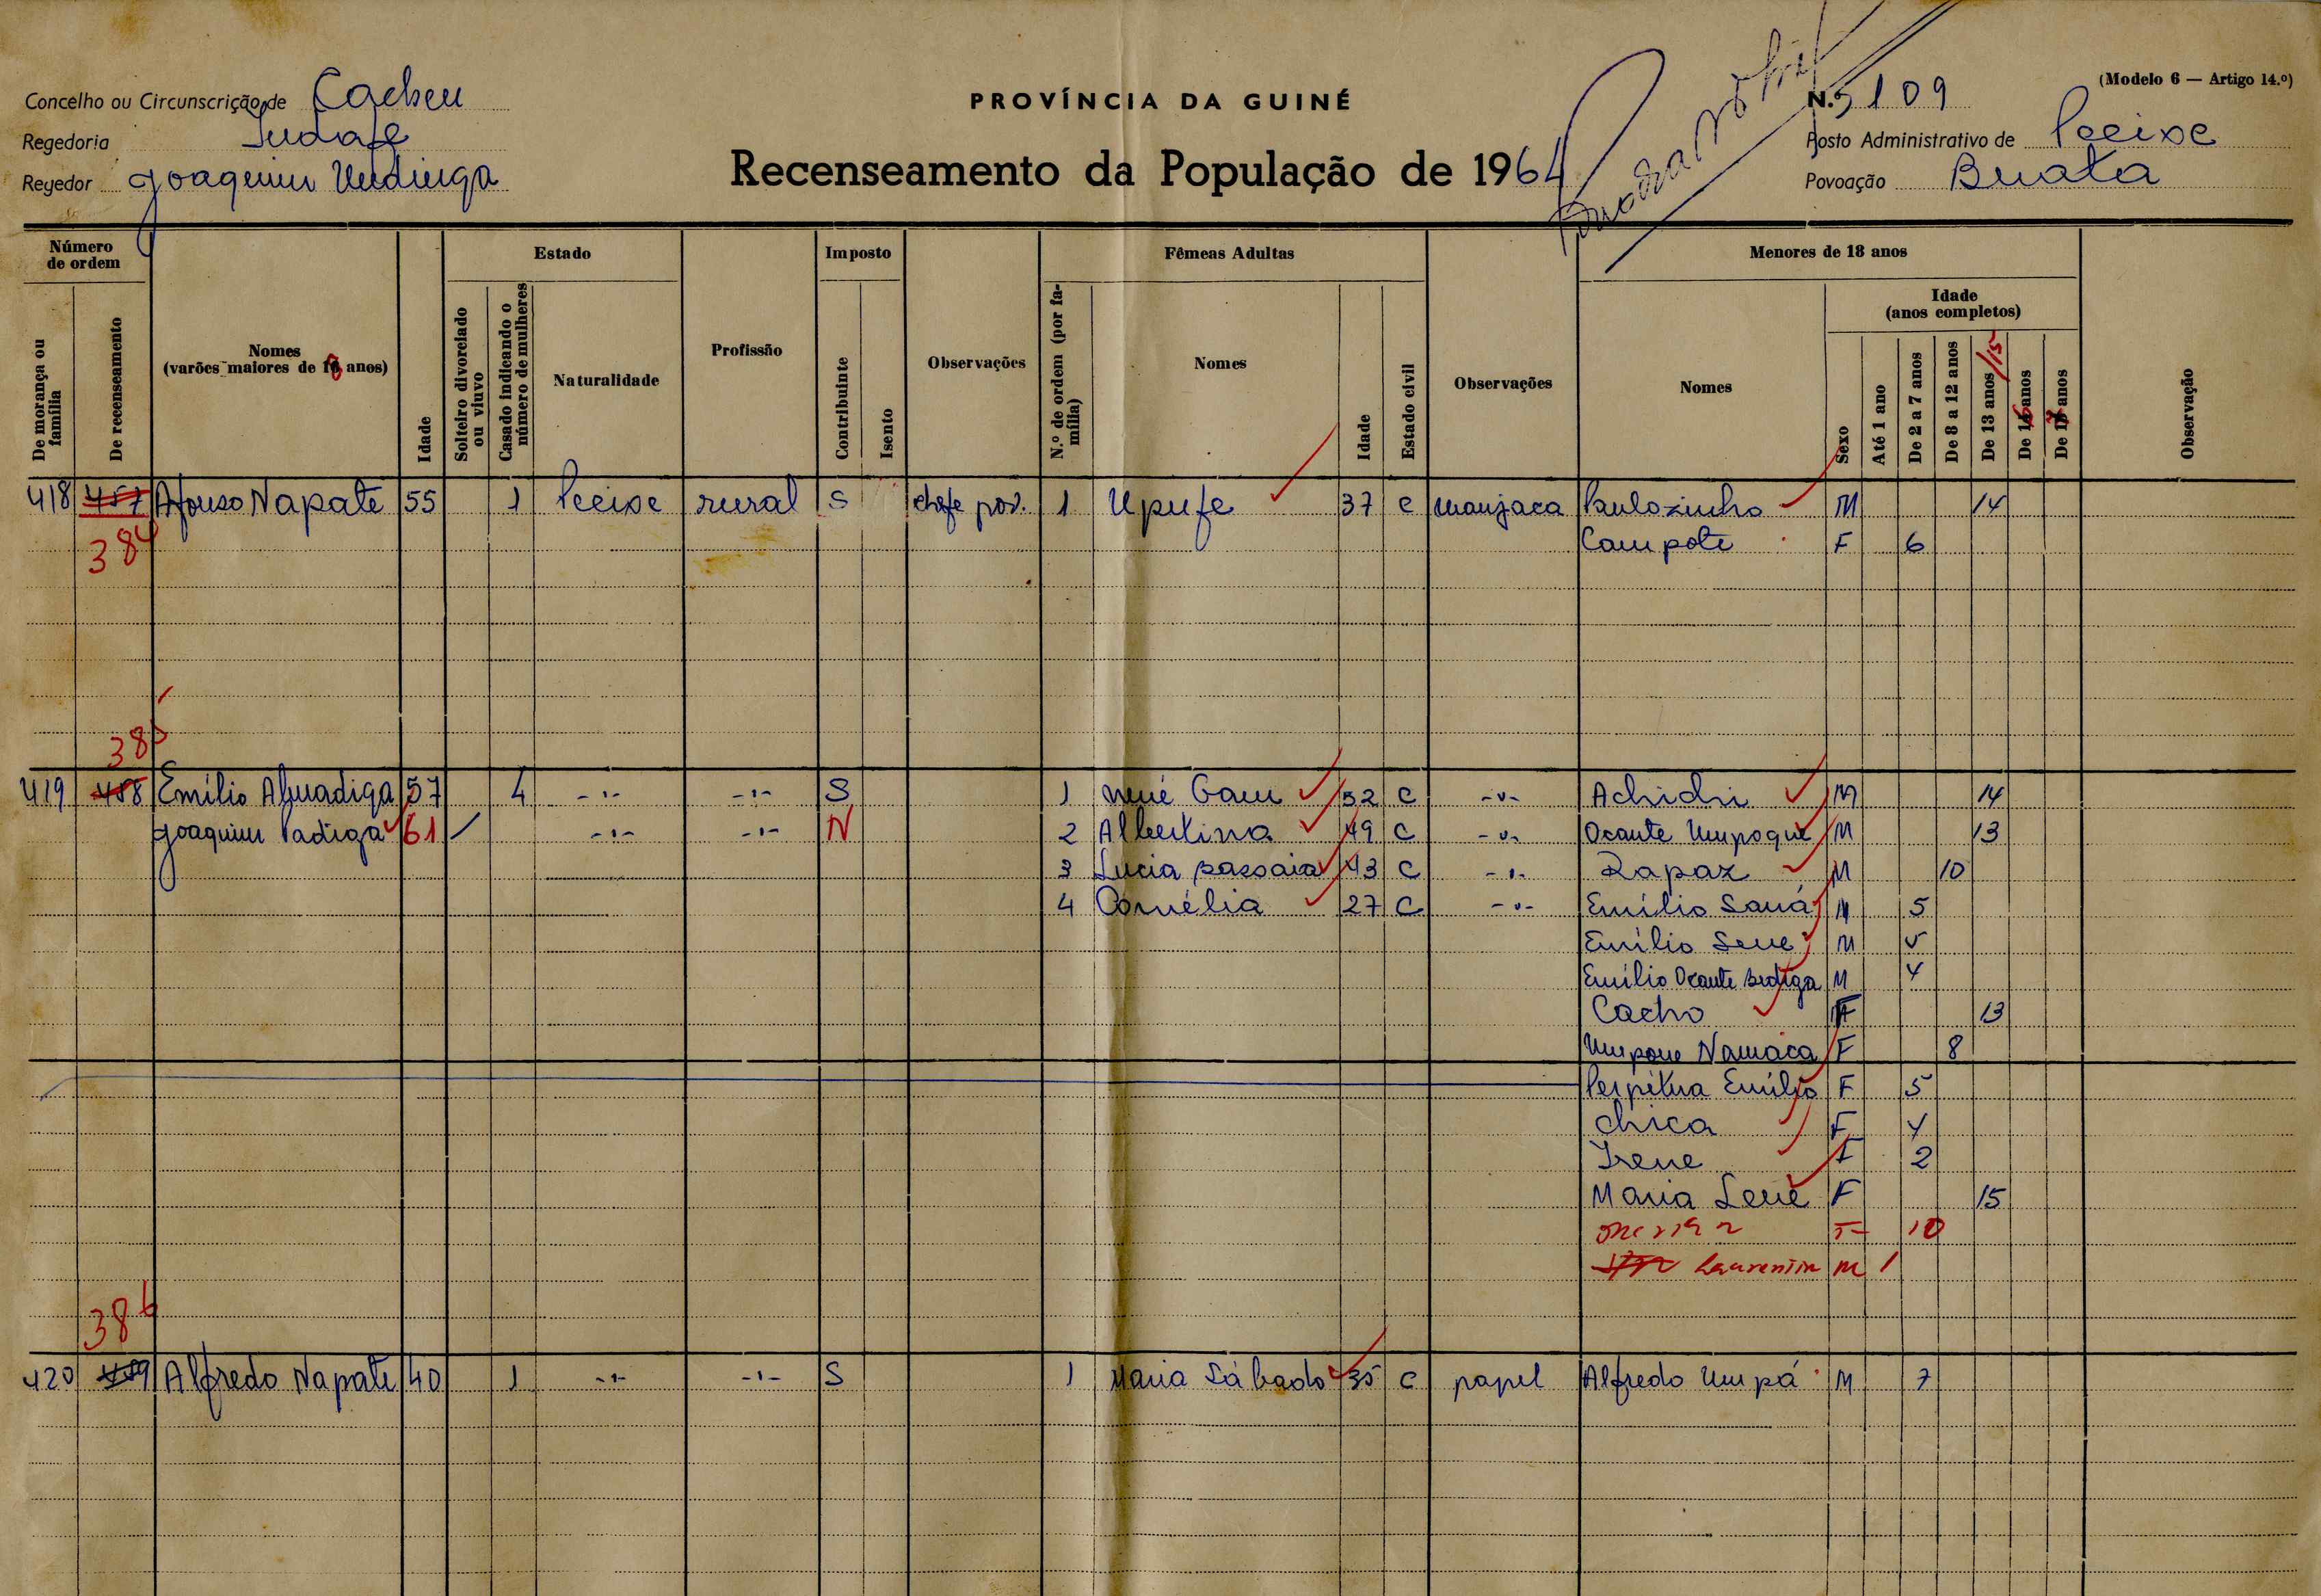 (Modelo 6 — Artigo 14.º)
Concelho ou Circunscrição de Cacheu
PROVÍNCIA DA GUINÉ
N.º 109
Regedoria
Posto Administrativo de Pecixe
Regedor Joaquim Undinga
Recenseamento da População de 1964
Povoação Buata
Número de ordem
De morança ou família
De recenseamento
Nomes (varões maiores de anos)
Idade
Estado
Solteiro divorciado ou viuvo
Casado indicando o número de mulheres
Naturalidade
Profissão
Imposto
Contribuinte
Isento
Observações
Fêmeas Adultas
N.º de ordem (por família)
Nomes
Idade
Estado civil
Observações
Menores de 18 anos
Nomes
Sexo
Idade (anos completos)
Até 1 ano
De 2 a 7 anos
De 8 a 12 anos
De 13 anos /15
De anos
De anos
Observação
418 457 Afonso Napate 55 1 Pecixe rural S chefe pov. 1 Upufe 37 C manjaca Paulozinho M 14
384 Campote F 6
385
419 458 Emílio Abnadiga 57 4 -"- -"- S 1 nené Gam 52 C -"- Achichi M 14
Joaquim Padiga 61 / -"- -"- N 2 Albertina 49 C -"- Ocante Umpoque M 13
3 Lucia 43 C -"- Rapaz M 10
4 Cornélia 27 C -"- Emílio Saná M 5
Emílio Sene M 5
Emílio Ocante Badiga M 4
Cacho F 13
Umpone Namaca F 8
Perpétua Emílio F 5
Chica F 4
Irene F 2
Maria Lené F 15
F 10
Laurentin M 1
386
420 459 Alfredo Napate 40 1 -"- -"- S 1 Maria Sábado 35 C papel Alfredo Umpá M 7